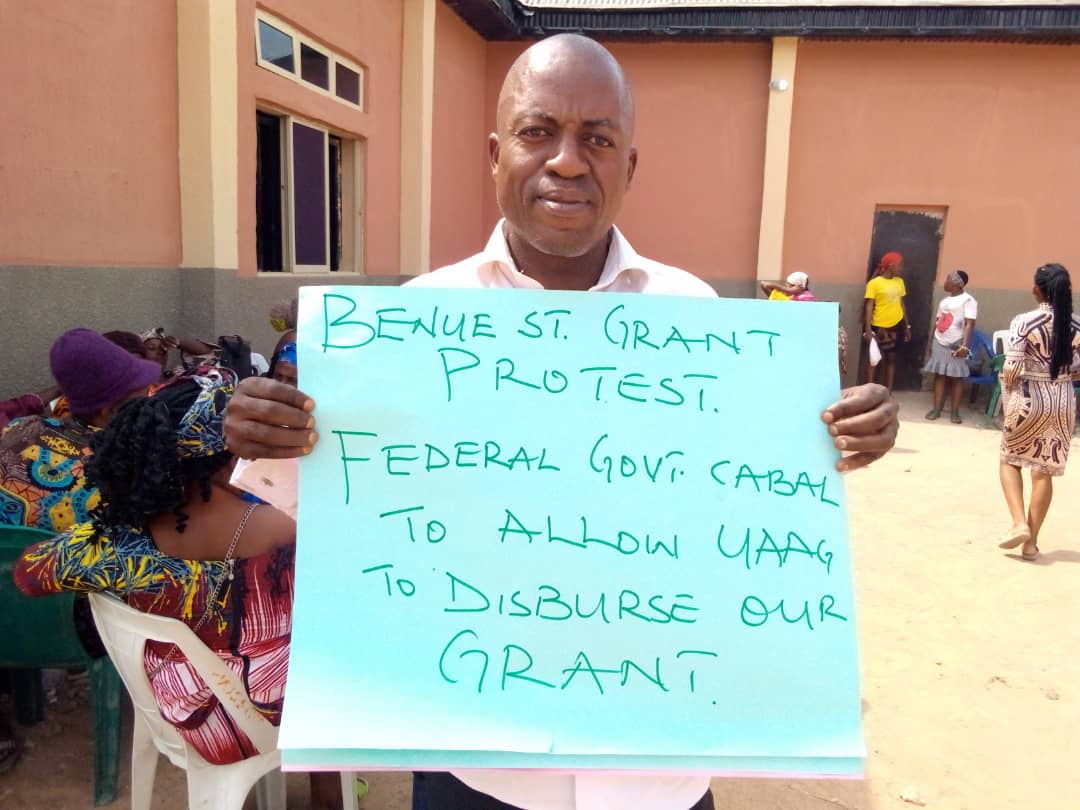 BENUE ST. GRANT
PROTEST.
FEDERAL GOVT. CABAL
TO ALLOW UAAG
TO DISBURSE OUR
GRANT.